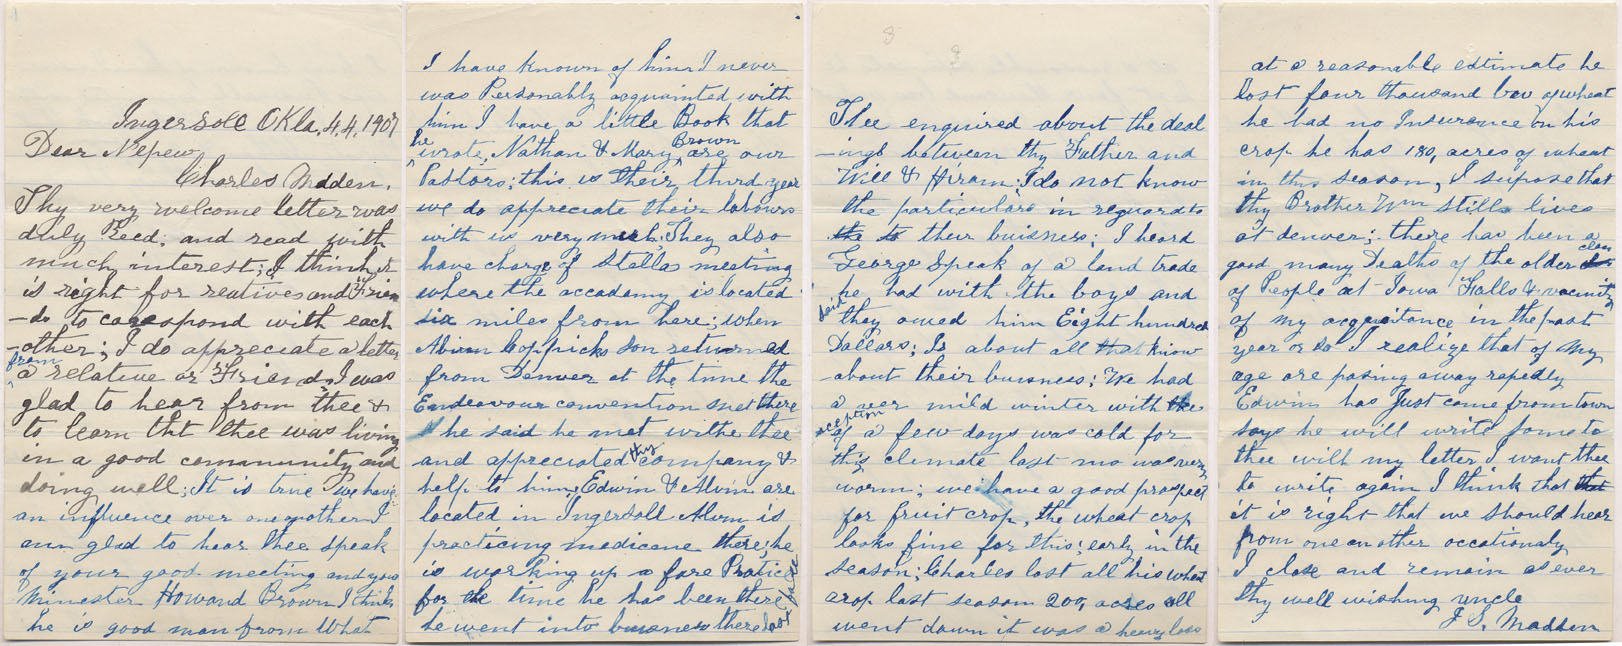 Ingersoll Okla, 4, 4, 1907
Dear Nepew,
Charles Madden.
Thy very welcome letter was
duly Recd; and read with
much interest; I think it
is right for reatives and Frien
-ds to corespond with each
-other; I do appreciate a letter
from
a relative or Friend, I was
glad to hear from thee &
to learn tht thee was living
in a good communinity and
doing well; It is true we have
an influence over one another I
am glad to hear thee speak
of your good meeting and your
Minester Howard Brown I think
he is good man from What
I have known of him I never
was Personably acquainted with
him I have a little Book that
he wrote, Nathan & Mary Brown are our
Pastors; this is their third year
we do appreciate their labours
with us very much, They also
have charge of Stella meeting
where the accademy is located
six miles from here; when
Abirm Coppicks son returned
from Denver at the time the
Endeavour convention met there
he said he met withe thee
and appreciated thy company &
help to him, Edwin & Alvin are
located in Ingersoll Alvin is
practicing medicene there; he
is working up a fare Pratice
for the time he has been there
he went into buisness there last
3
3
Thee enquired about the deal
-ings between thy Father and
Will & Hiram; I do not know
the particulars in reguard to
the to their buisness; I heard
George Speak of a land trade
he had with the boys and
said
they owed him Eight hundred
Dollars; Is about all that know
about their buisness; We had
a ver mild winter with the
acception
of a few days was cold for
this climate last mo was very
worm; we have a good prospect
for fruit crop, the wheat crop
looks fine for this; early in the
season; Charles lost all his wheat
crop last season 200, acres all
went down it was a heavy loss
at a reasonable estimate he
lost four thousand bu of wheat
he had no Insurence on his
crop he has 180, acres of wheat
in this season, I supose that
thy Brother Wm still lives
at denver; there has been a
good many Deaths of the older class
of People at Iowa Falls & vacinity
of my acquaitance in the past
year or so I realize that of my
age are pasing away rapedly
Edwin has Just come from town
says he will write some to
thee with my letter I want thee
to write again I think that that
it is right that we should hear
from one an other occationaly
I close and remain as ever
thy well wishing uncle
J. S. Madden